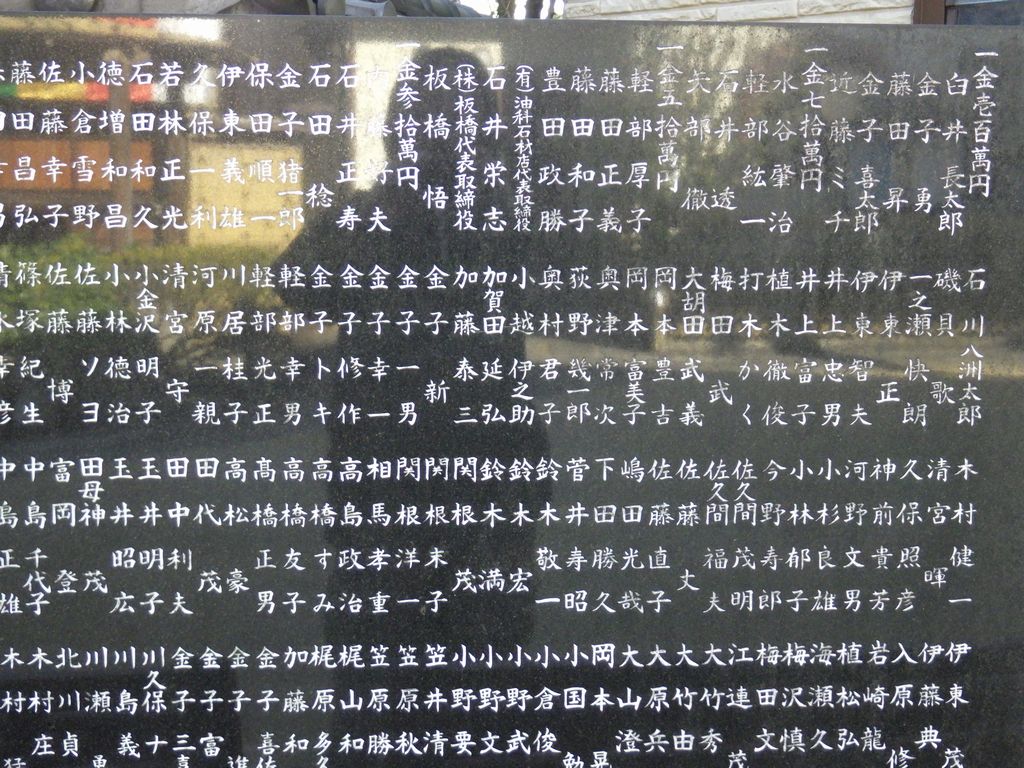 一金壱百萬円
白井長太郎
金子勇
藤田昇
金子喜太郎
近藤ミチ
一金七拾萬円
水谷肇治
軽部紘一
石井透
矢部徹
一金五拾萬円
軽部厚子
藤田正義
藤田和子
豊田政勝
(有)油科石材店代表取締役
石井栄志
(株)板橋代表取締役
板橋悟
一金参拾萬円
藤好夫
石井正寿
石田稔
金子猪一郎
保田順一
伊東義雄
久保一利
若林正光
石田和久
徳増和昌
小倉雪野
佐藤幸子
藤田昌弘
石川八洲太郎
磯貝歌
一之瀬快朗
伊東正
伊東智夫
井上忠男
井上富子
植木徹俊
打木かく
梅田武
大胡田武義
岡本豊吉
岡本富美子
奥津常次
荻野幾一郎
奥村君子
小越伊之助
加賀田延弘
加藤泰三
金子新
金子一男
金子幸一
金子修作
金子トキ
軽部幸男
軽部光正
川居桂子
河原一親
清宮守
小金沢明子
小林徳治
佐藤ソヨ
佐藤博
篠塚紀生
清水幸彦
木村健一
清宮暉
久保照彦
神前貴芳
河野文男
小杉良雄
小林郁子
今野寿郎
佐久間茂明
佐久間福夫
佐藤丈
佐藤直子
嶋田光哉
下田勝久
菅井寿昭
鈴木敬一
鈴木宏
鈴木満
関根茂
関根末子
関根洋一
相馬孝重
高島政治
高橋すみ
高橋友子
髙橋正男
高松豪
田代茂
田中利夫
玉井明子
玉井昭広
田母神茂
富岡登
中島千代子
中島正雄
伊東茂
伊藤典
入原修
岩崎龍
植松弘
海瀬久
梅沢慎
梅田文
江連茂
大竹秀
大竹由
大原兵
大山澄
岡本晃
小国勤
小倉俊
小野武
小野文
小野要
笠井清
笠原秋
笠原勝
梶山和
梶原多久
加藤和
金子喜佐
金子進
金子富
金子三喜
川久保十
川島義
川瀬勇
北川貞
木村庄
木村猛